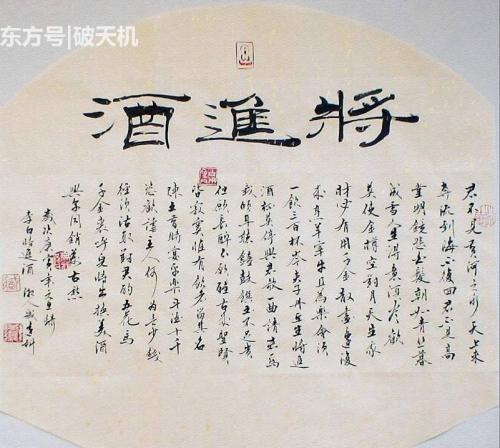 东方号|破天机
將進酒
君不見黃河之水天上來
奔流到海不復回君不見高
堂明鏡悲白髮朝如青絲暮
成雪人生得意須盡歡
莫使金樽空對月天生我
材必有用千金散盡還復
來烹羊宰牛且為樂會須
一飲三百杯岑夫子丹丘生將進
酒杯莫停與君歌一曲請君為
我傾耳聽鐘鼓饌玉不足貴
但願長醉不願醒古來聖賢
皆寂寞惟有飲者留其名
陳王昔時宴平樂斗酒十千
恣歡謔主人何為言少錢
徑須沽取對君酌五花馬
千金裘呼兒將出換美酒
與爾同銷萬古愁
歲次庚寅年
李白將進酒